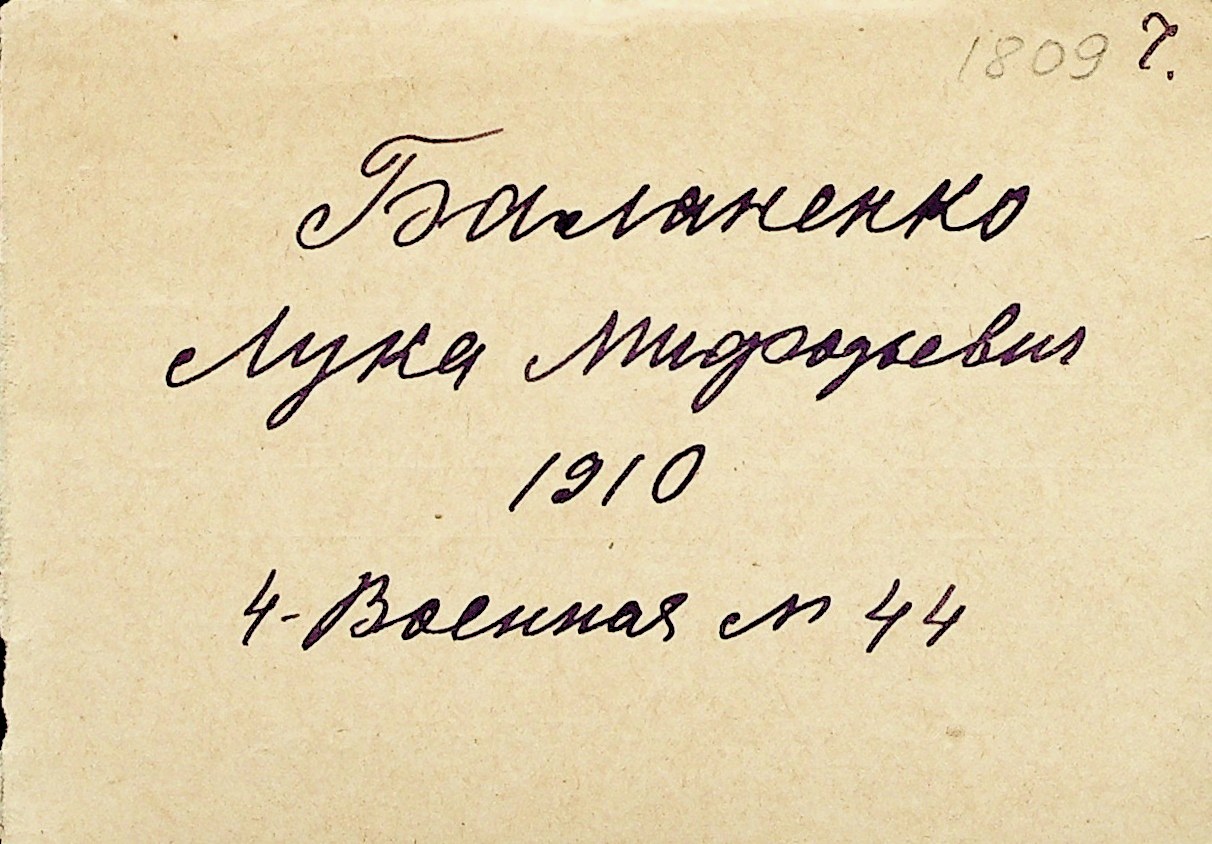 1809 г.
Баланенко
Лука Мифодьевич
1910
4-Военная № 44